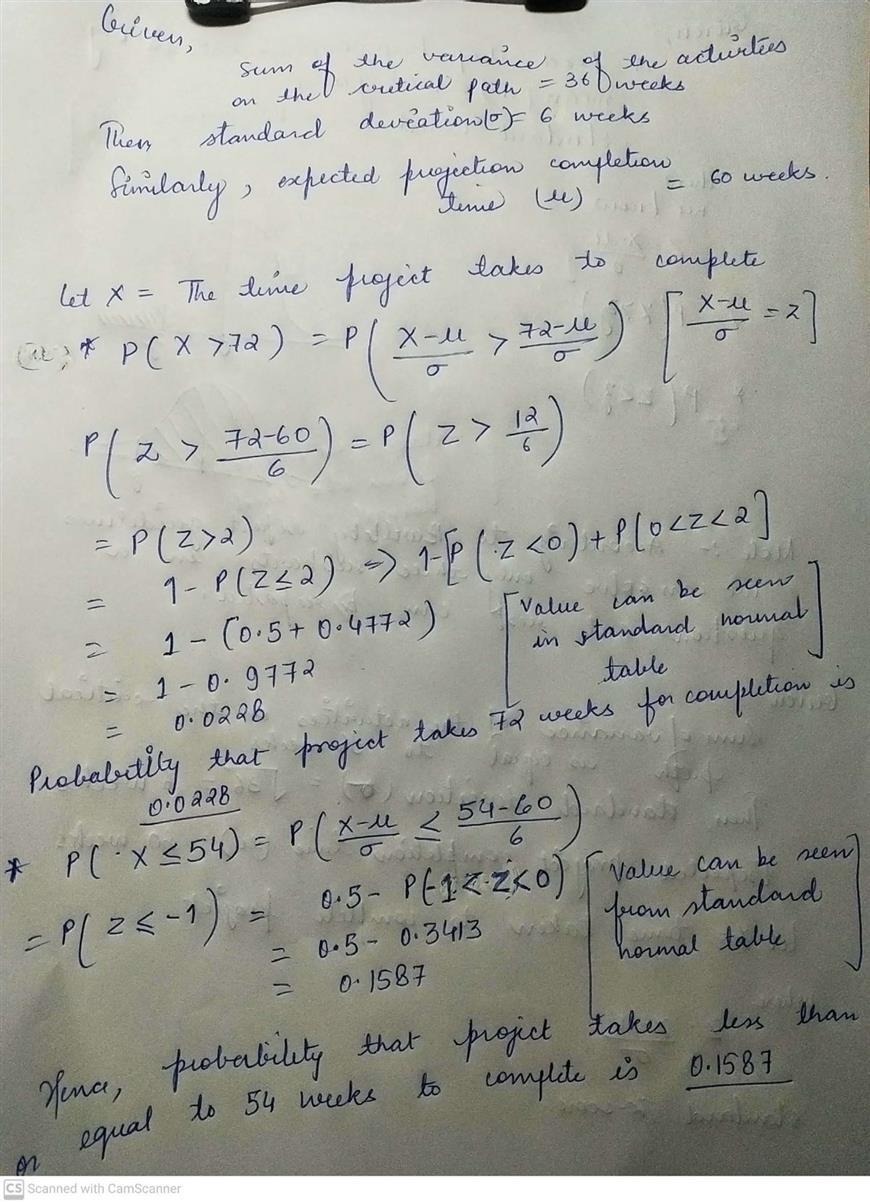 Given,
Sum of the variance of the activities
on the critical path = 36 weeks
Then standard deviation(σ) = 6 weeks
Similarly, expected projection completion
time (μ) = 60 weeks.
Let X = The time project takes to complete
* P(X > 72) = P( (X-μ)/σ > (72-μ)/σ ) [ (X-μ)/σ = z ]
P( Z > (72-60)/6 ) = P( Z > 12/6 )
= P(Z>2)
= 1 - P(Z≤2) => 1-[P(Z<0) + P(0<Z<2]
= 1 - (0.5 + 0.4772) [Value can be seen
in standard normal
table]
= 1 - 0.9772
= 0.0228
Probability that project takes 72 weeks for completion is
0.0228
* P(X ≤ 54) = P( (X-μ)/σ ≤ (54-60)/6 )
= P( Z ≤ -1) = 0.5 - P(-1<Z<0) [Value can be seen
from standard
normal table]
= 0.5 - 0.3413
= 0.1587
Hence, probability that project takes less than
or equal to 54 weeks to complete is 0.1587
CS Scanned with CamScanner